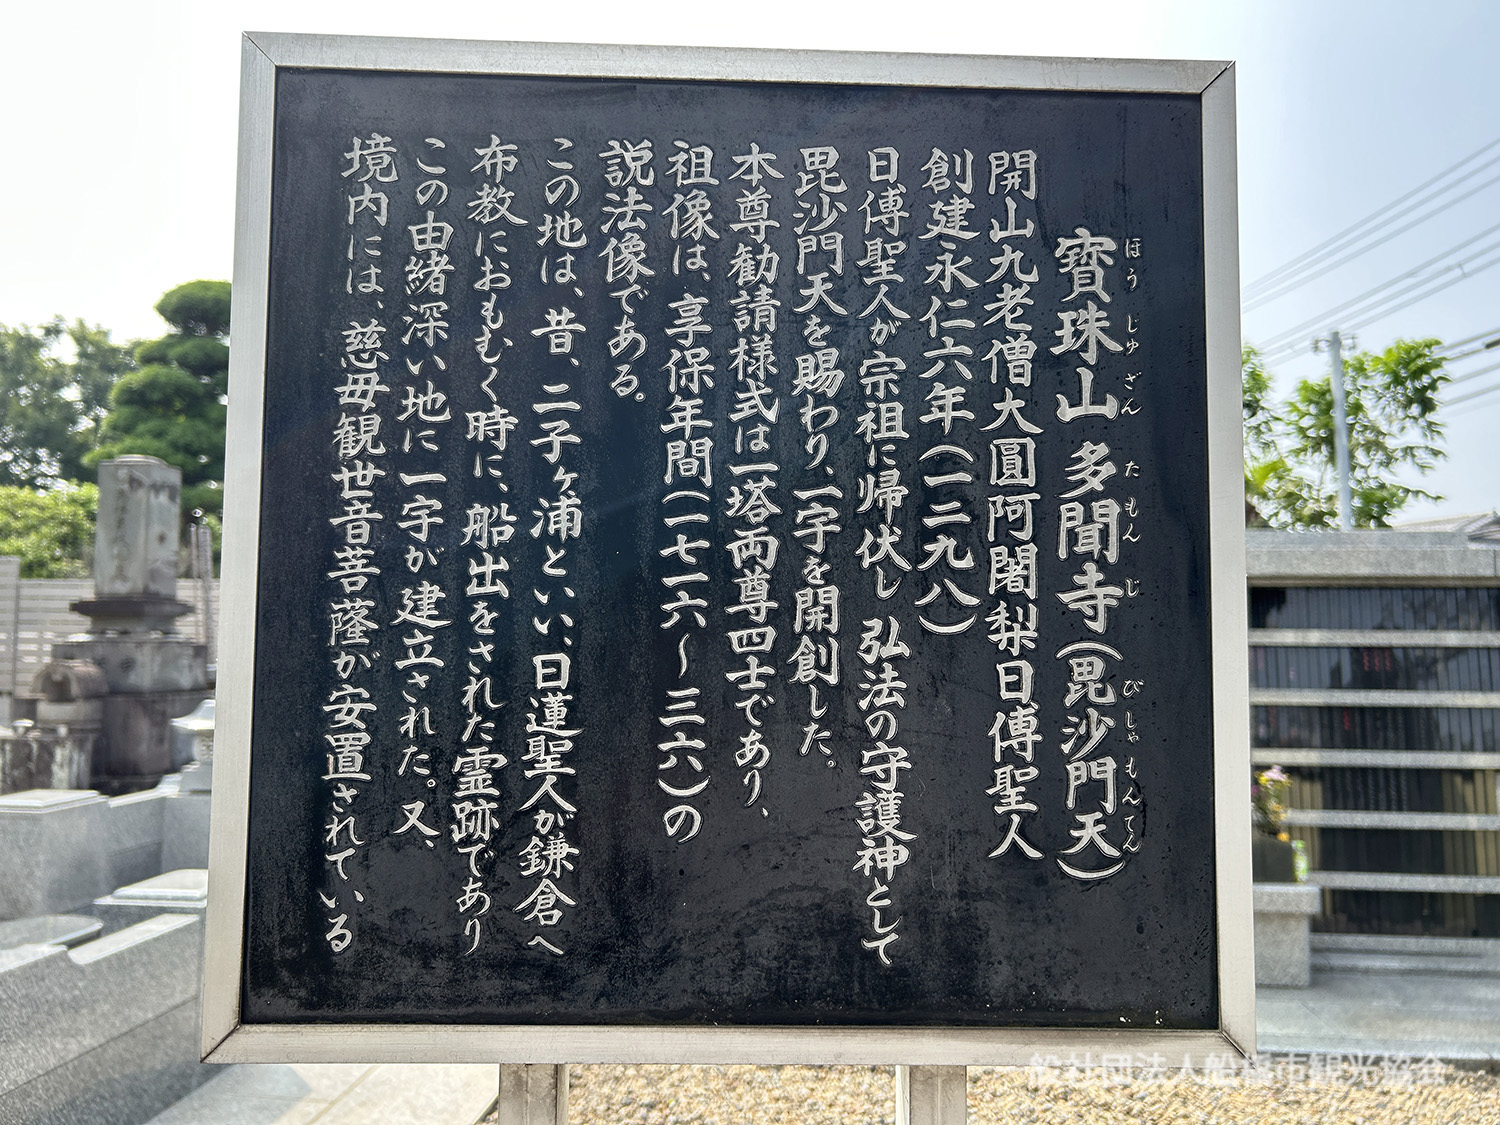 寶珠山 多聞寺（毘沙門天）
ほう じゅ ざん た もん じ び しゃ もん てん
開山九老僧大圓阿闍梨日傳聖人
創建永仁六年（一二九八）
日傳聖人が宗祖に帰伏し 弘法の守護神として
毘沙門天を賜わり、一宇を開創した。
本尊勧請様式は一塔両尊四士であり、
祖像は、享保年間（一七一六～三六）の
説法像である。
この地は、昔、二子ヶ浦といい、日蓮聖人が鎌倉へ
布教におもむく時に、船出をされた霊跡であり
この由緒深い地に一宇が建立された。又、
境内には、慈母観世音菩薩が安置されている
一般社団法人船橋市観光協会